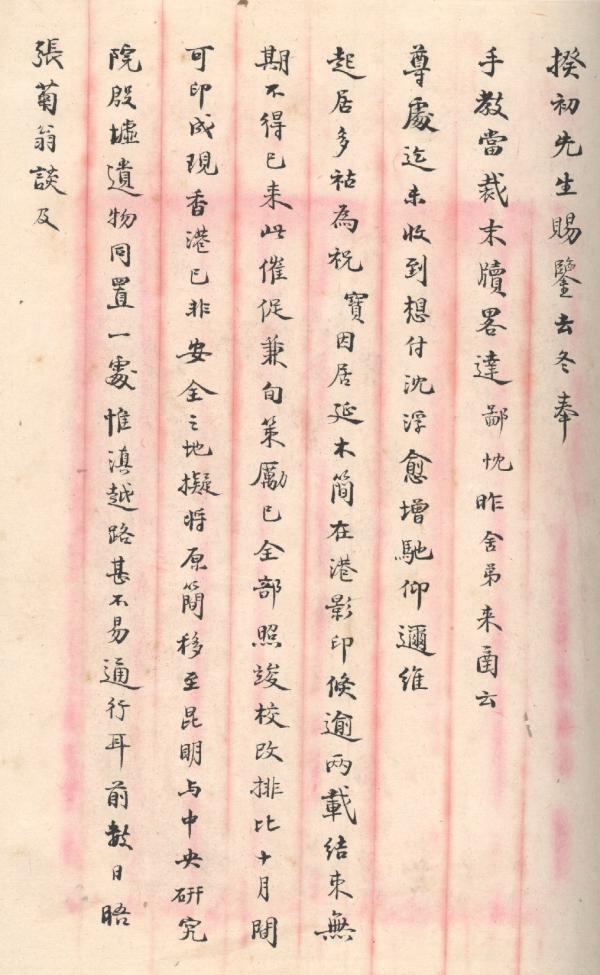 揆初先生賜鑒去冬奉
手教當裁末牘畧達鄙忱昨舍弟来函云
尊處迄未收到想付沈浮愈增馳仰邇維
起居多祜為祝 寶因居延木簡在港影印倐逾兩載結束無
期不得已来此催促兼旬策厲已全部照竣校改排比十月間
可印成現香港已非安全之地擬将原簡移至昆明与中央研究
院殷墟遺物同置一處惟滇越路甚不易通行耳前數日晤
張菊翁談及